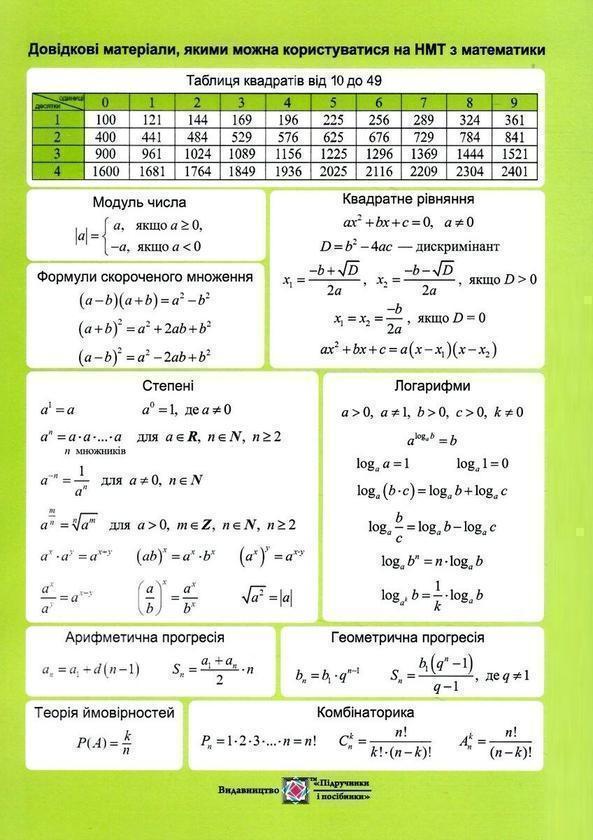 Довідкові матеріали, якими можна користуватися на НМТ з математики
Таблиця квадратів від 10 до 49
десятки одиниці 0 1 2 3 4 5 6 7 8 9
1 100 121 144 169 196 225 256 289 324 361
2 400 441 484 529 576 625 676 729 784 841
3 900 961 1024 1089 1156 1225 1296 1369 1444 1521
4 1600 1681 1764 1849 1936 2025 2116 2209 2304 2401
Модуль числа
|a| = { a, якщо a ≥ 0,
−a, якщо a < 0
Формули скороченого множення
(a − b)(a + b) = a² − b²
(a + b)² = a² + 2ab + b²
(a − b)² = a² − 2ab + b²
Квадратне рівняння
ax² + bx + c = 0, a ≠ 0
D = b² − 4ac — дискримінант
x₁ = (−b + √D)/2a, x₂ = (−b − √D)/2a, якщо D > 0
x₁ = x₂ = −b/2a, якщо D = 0
ax² + bx + c = a(x − x₁)(x − x₂)
Степені
a¹ = a a⁰ = 1, де a ≠ 0
aⁿ = a·a·...·a для a ∈ R, n ∈ N, n ≥ 2
n множників
a⁻ⁿ = 1/aⁿ для a ≠ 0, n ∈ N
a^(m/n) = ⁿ√aᵐ для a > 0, m ∈ Z, n ∈ N, n ≥ 2
aˣ · aʸ = aˣ⁺ʸ (ab)ˣ = aˣ · bˣ (aˣ)ʸ = a^(x·y)
aˣ/aʸ = aˣ⁻ʸ (a/b)ˣ = aˣ/bˣ √a² = |a|
Логарифми
a > 0, a ≠ 1, b > 0, c > 0, k ≠ 0
a^(logₐ b) = b
logₐ a = 1 logₐ 1 = 0
logₐ (b · c) = logₐ b + logₐ c
logₐ b/c = logₐ b − logₐ c
logₐ bⁿ = n · logₐ b
log_(aᵏ) b = 1/k · logₐ b
Арифметична прогресія
aₙ = a₁ + d(n − 1) Sₙ = (a₁ + aₙ)/2 · n
Геометрична прогресія
bₙ = b₁ · qⁿ⁻¹ Sₙ = b₁(qⁿ − 1)/(q − 1), де q ≠ 1
Теорія ймовірностей
P(A) = k/n
Комбінаторика
Pₙ = 1·2·3·...·n = n! Cₙᵏ = n!/(k!·(n − k)!) Aₙᵏ = n!/(n − k)!
Видавництво ™ «Підручники
і посібники»